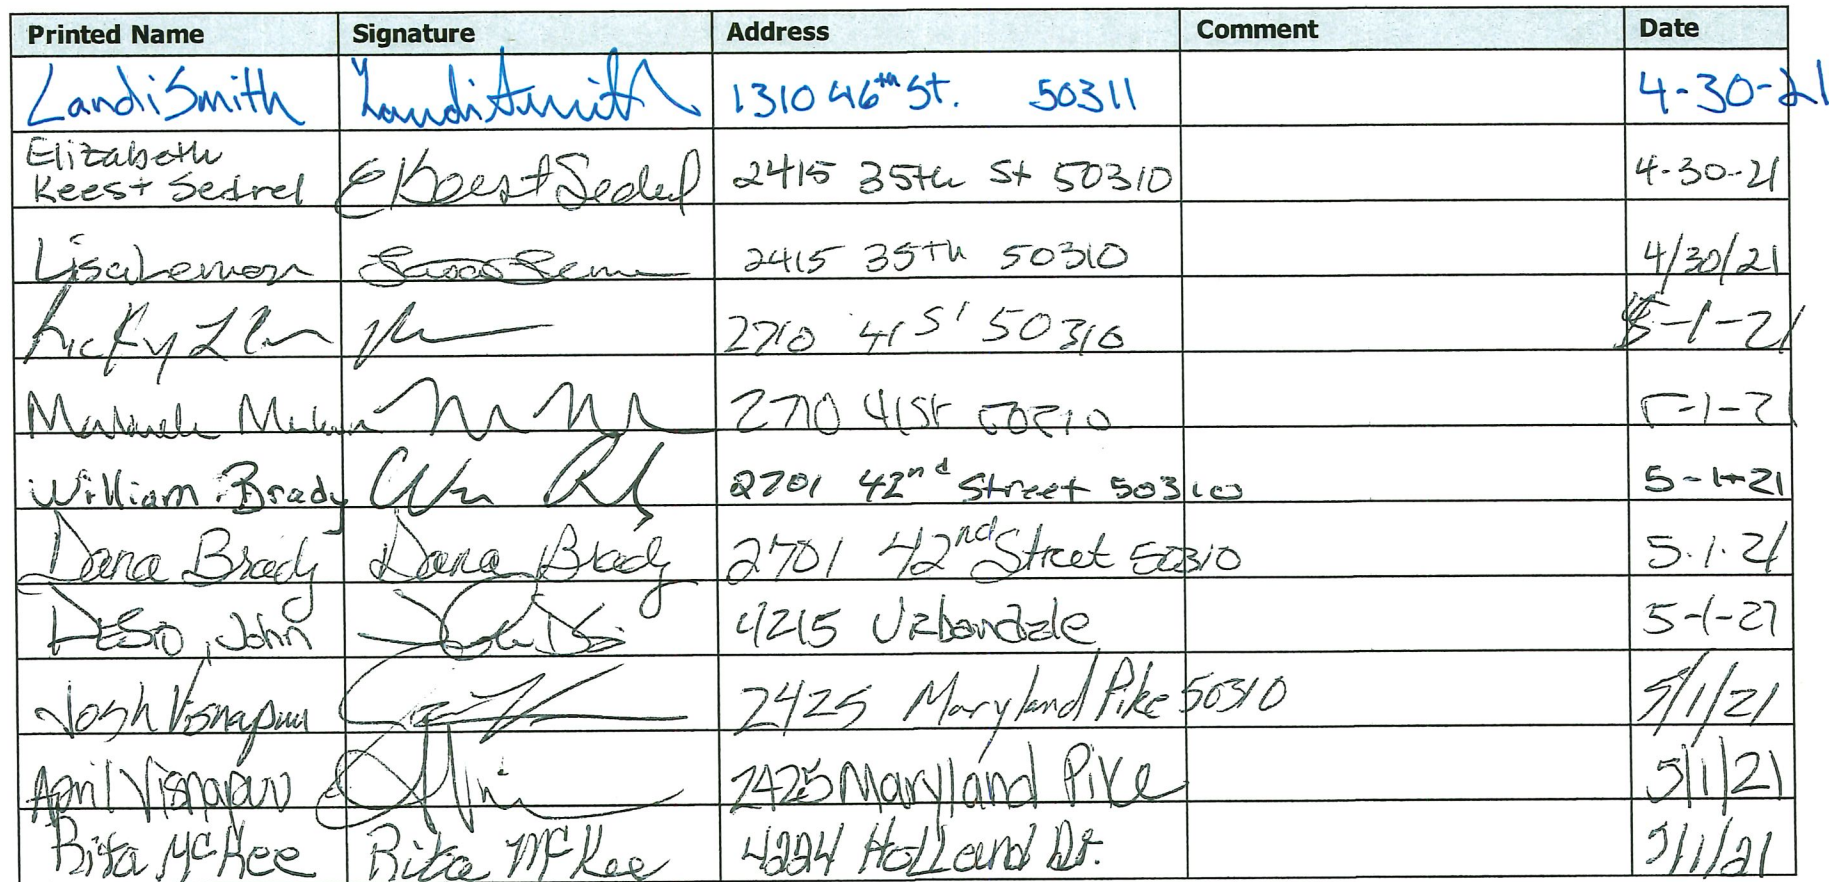 Printed Name Signature Address Comment Date
Landi Smith Landi Smith 1310 46th St. 50311 4-30-21
Elizabeth
Keest Sedrel EKeest Sedrel 2415 35th St 50310 4-30-21
Lisa Lemon 2415 35th 50310 4/30/21
Ricky 2710 41 St 50310 5-1-21
2710 41st 50310 5-1-21
William Brady 2701 42nd Street 50310 5-1-21
Dana Brady Dana Brady 2701 42nd Street 50310 5.1.21
Desio, John 4215 Urbandale 5-1-21
Josh Visnapuu 2425 Maryland Pike 50310 5/1/21
April Visnapuu 2425 Maryland Pike 5/1/21
Rita McKee Rita McKee 4224 Holland Dr. 5/1/21